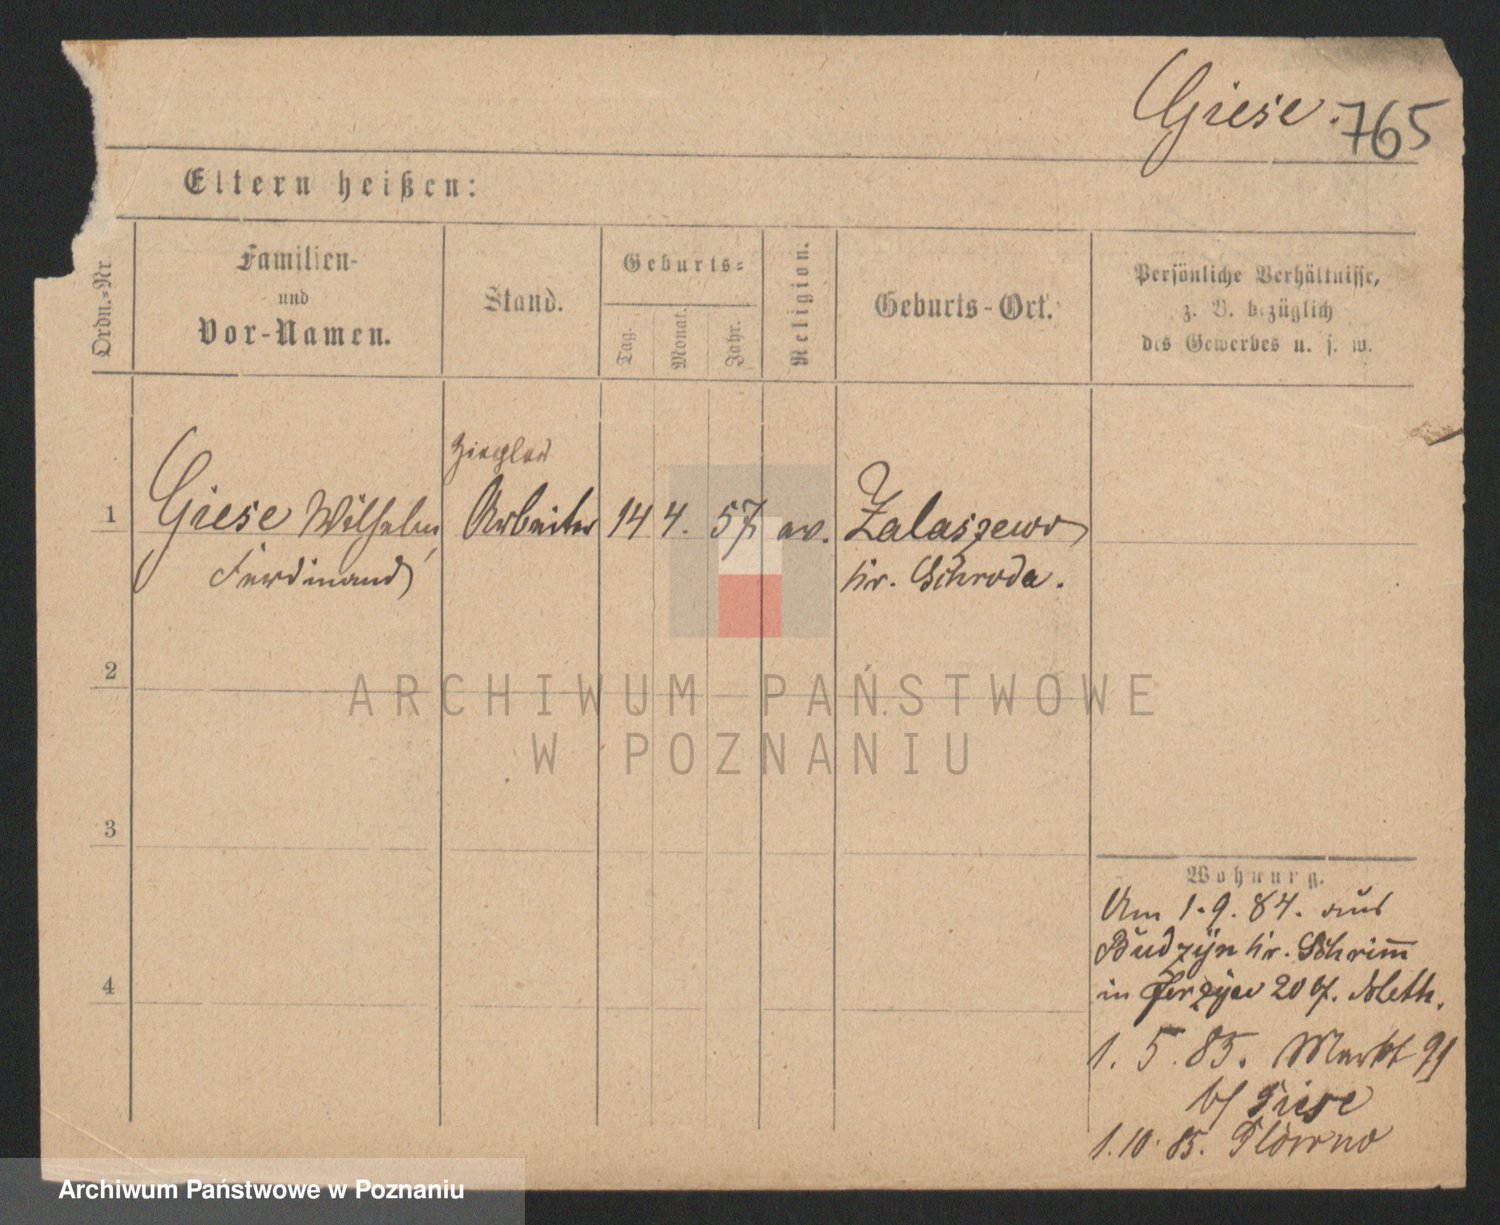 Giese. 765
Eltern heißen:
Ordn.-Nr.
Familien-
und
Vor-Namen.
Stand.
Geburts-
Tag.
Monat.
Jahr.
Religion.
Geburts-Ort.
Persönliche Verhältnisse,
z. B. bezüglich
des Gewerbes u. s. w.
Ziegler
1 Giese Wilhelm Arbeiter 14 4. 57 ev. Zalaszewo
Ferdinand Kr. Schroda.
2
ARCHIWUM PAŃSTWOWE
W POZNANIU
3
Wohnung.
Am 1.9.84. aus
Budzÿn Kr. Schrimm
in 20 b/.
4
1. 5. 85. Markt 91
b/ Giese
1.10.85. Glówno
Archiwum Państwowe w Poznaniu